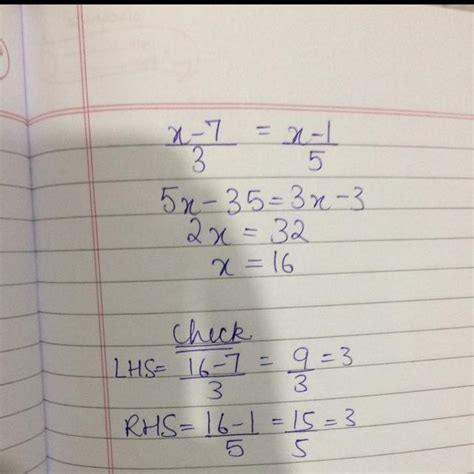 x-7/3 = x-1/5
5x-35=3x-3
2x = 32
x = 16
Check
LHS= 16-7/3 = 9/3 = 3
RHS= 16-1/5 = 15/5 = 3